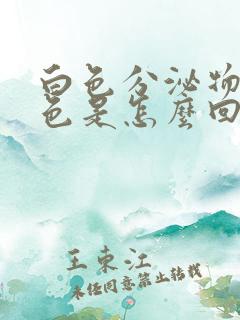 白色分泌物
色是怎麼回
王東江
未经同意禁止转载